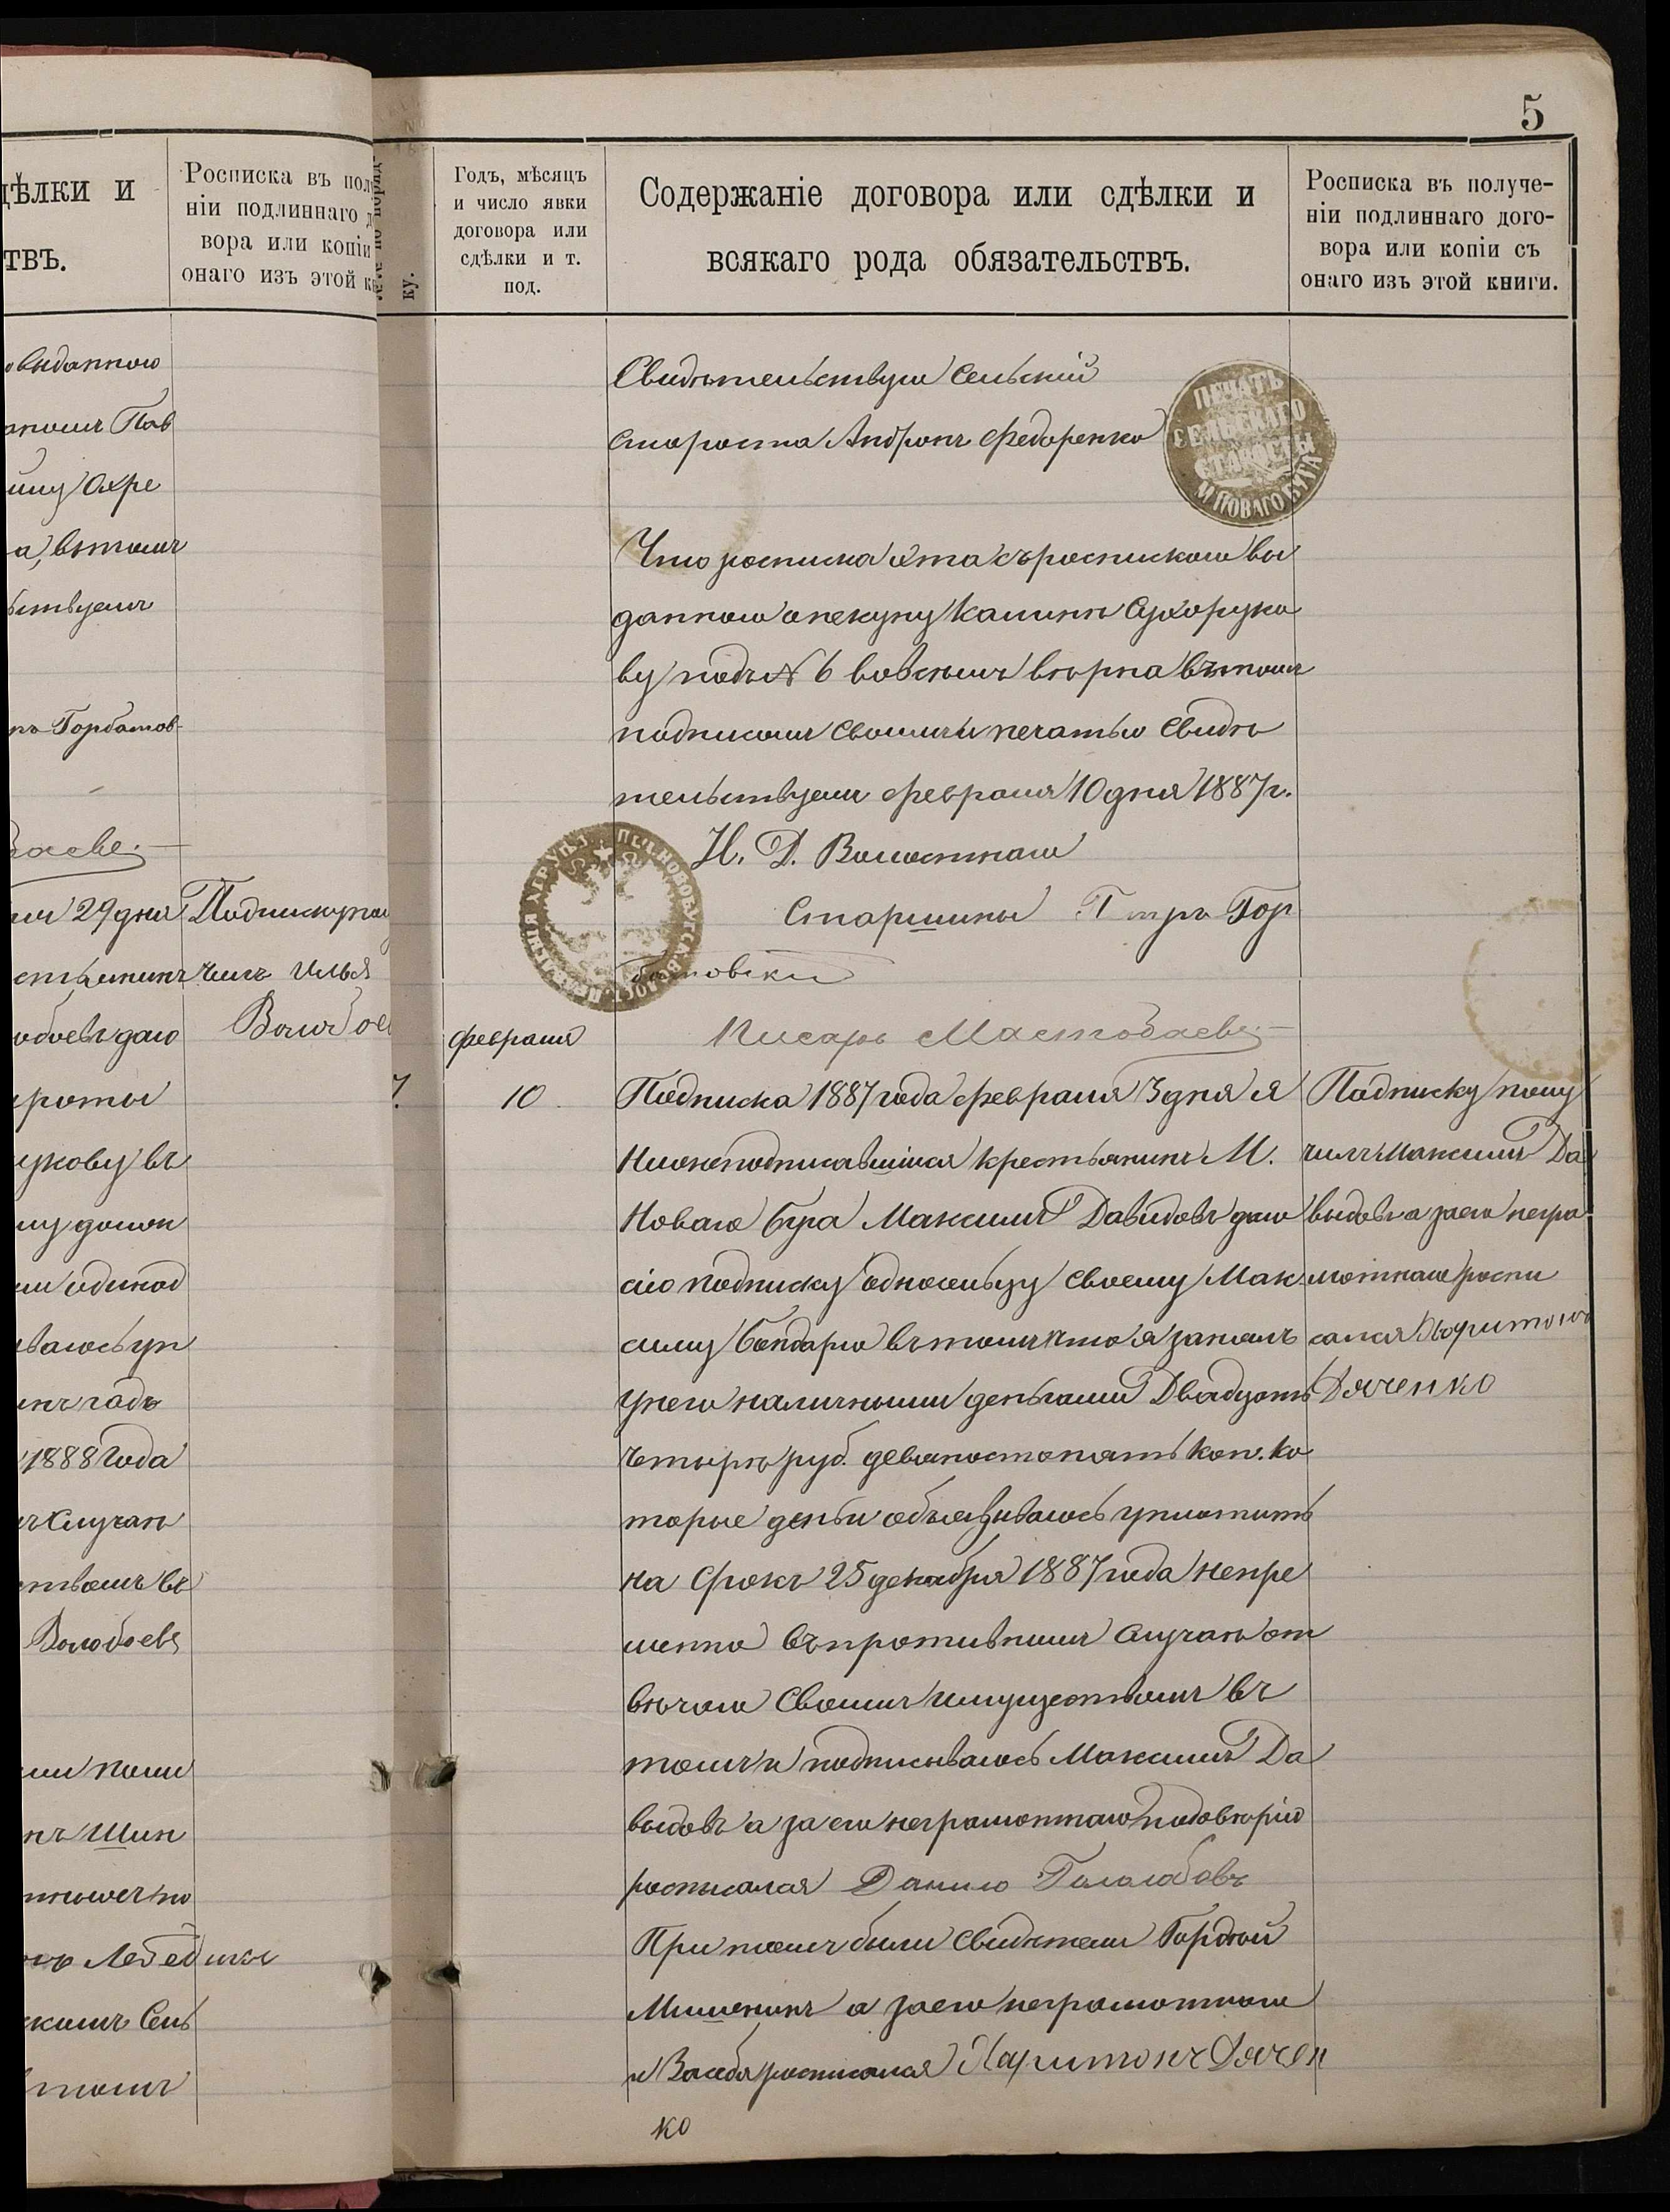 5
дѣлки и
ствъ.
Росписка въ пол
ніи подлиннаго д
вора или копіи
онаго изъ этой к
ку.
Годъ, мѣсяцъ
и число явки
договора или
сдѣлки и т.
под.
Содержаніе договора или сдѣлки и
всякаго рода обязательствъ.
Росписка въ получе-
ніи подлиннаго дого-
вора или копіи съ
онаго изъ этой книги.
выданною
Пав
Охре
а, вътомъ
ствуемъ
Горбатов-
29 дня
даю
сироты
укову въ
одинод
гадъ
1888 года
случаѣ
ствомъ въ
Волобоевъ
Шин
Лебедин
Сель
томъ
Подписку пол
чилъ Илья
Волобое
Свидѣтельствую Сельскій
Староста Андронъ Федоренко
ПЕЧАТЬ
СЕЛЬСКАГО
СТАРОСТЫ
М НОВАГО БУГА
Что росписка эта съ роспискою вы
данною опекуну Калинѣ Сухоруко
ву подъ № 6 во всемъ вѣрна вътомъ
подписомъ своимъ и печатью свидѣ
тельствуемъ февраля 10 дня 1887 г.
И. Д. Волостнаго
Старшины Петръ Гор
батовски
Писарь Мастобаевъ
февраля
7.
10
Подписка 1887 года февраля 3 дня я
Нижеподписавшийся крестьянинъ М.
Новаго Буга Максимъ Давидовъ даю
сію подписку односельцу своему Мак
симу Бондарю вътомъ что я занялъ
унего наличными деньгами Двадцать
четыре руб. девяностопять коп. ко
торые деньги обьязываюсь уплатить
на срокъ 25 декабря 1887 года непре
менно въ противномъ случаѣ от
вѣчаю своимъ имуществомъ въ
томъ и подписываюсь Максимъ Да
выдовъ а за его неграмотнаго подовѣрію
росписался Данило Гололобовъ
При томъ были свидѣтели Гордѣй
Мишенинъ а заего неграмотнаго
и Засебя росписался Харитонъ Дячен
ко
Падписку полу
чилъ Максимъ Да
выдовъ а заего негра
мотнаго роспи
сался Харитонъ
Дяченко